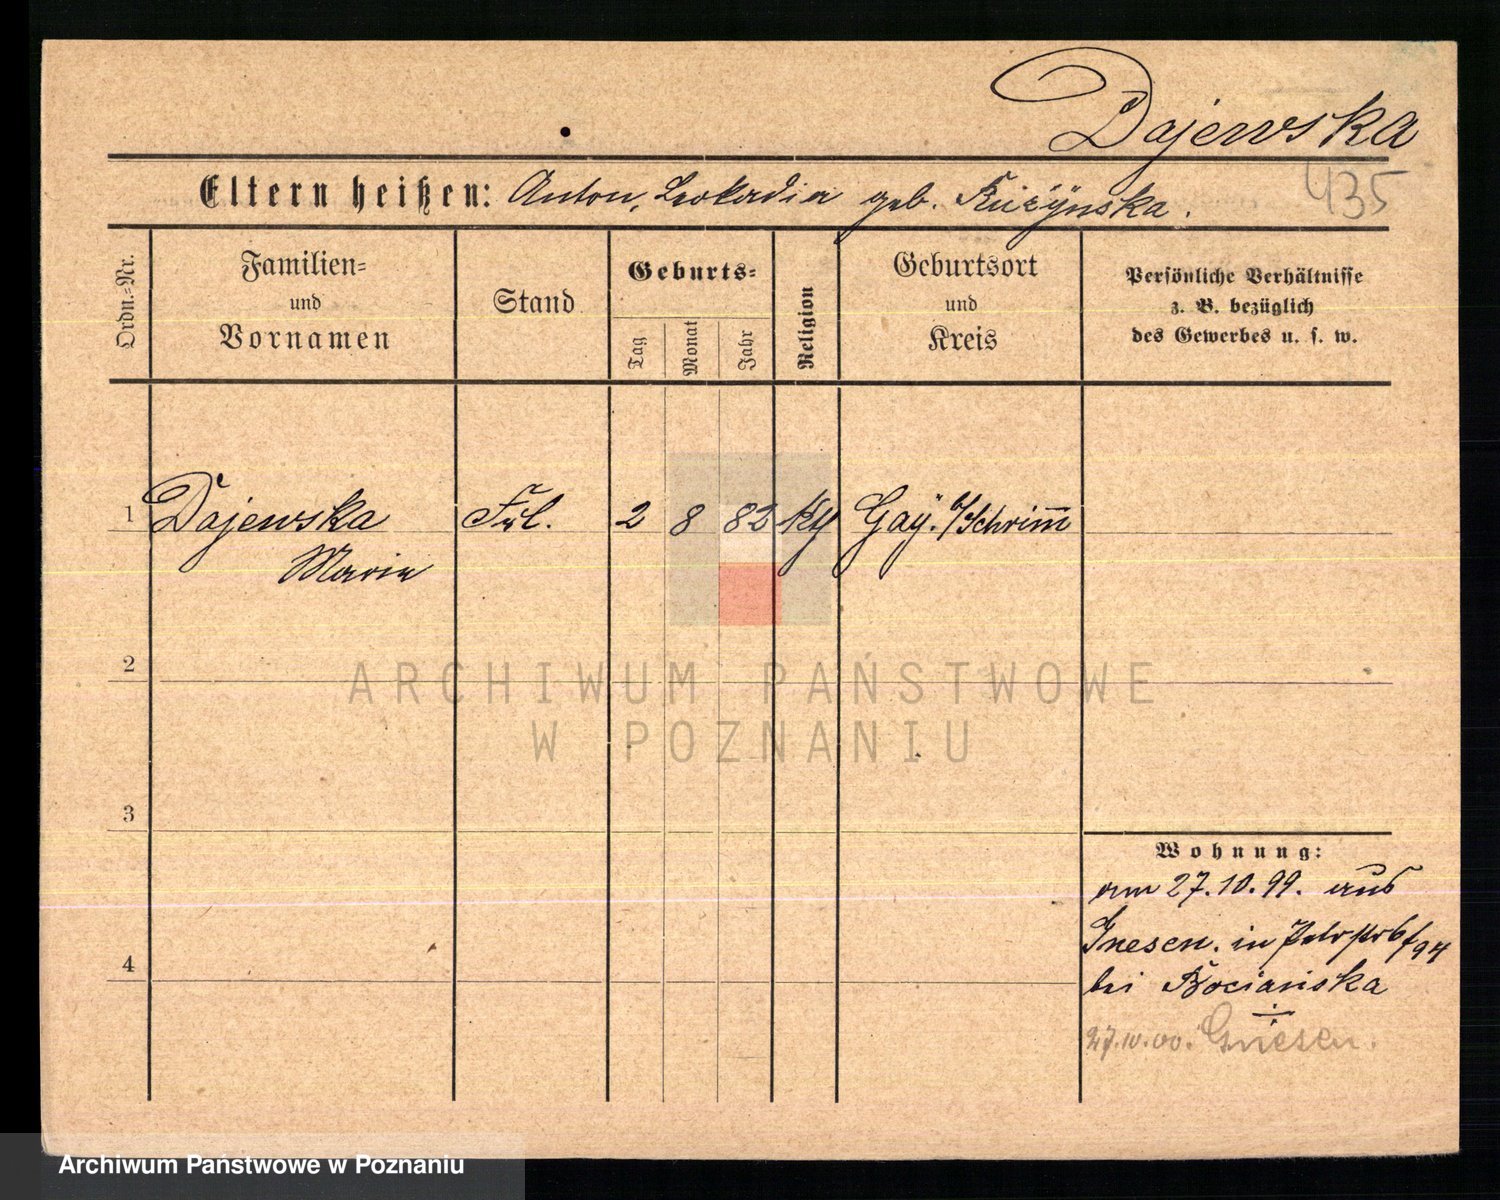 Dajewska
435
Eltern heißen: Anton, Leokadia geb. Kużynska.
Ordn.-Nr.
Familien- und Vornamen
Stand
Geburts-
Tag
Monat
Jahr
Religion
Geburtsort und Kreis
Persönliche Verhältnisse
z. B. bezüglich
des Gewerbes u. s. w.
1 Dajewska Frl. 2 8 82 Gay. Schrim̅
Maria
2
3
4
Wohnung:
am 27.10.99. aus
Gnesen. in 94
bei Bociańska
27.10.00. Gnesen.
ARCHIWUM PAŃSTWOWE
W POZNANIU
Archiwum Państwowe w Poznaniu